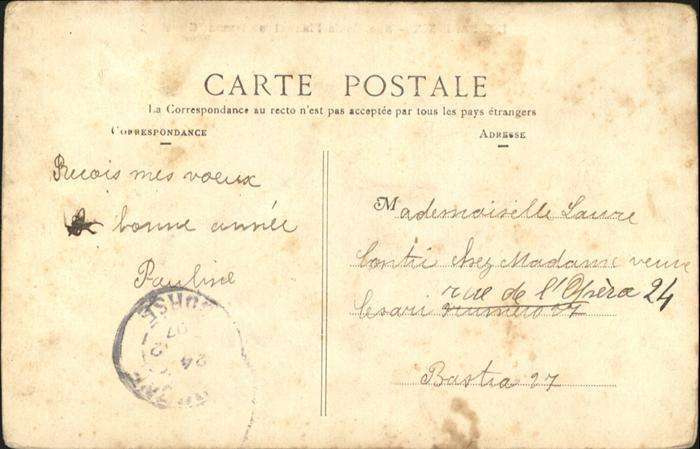 CARTE POSTALE
La Correspondance au recto n'est pas acceptée par tous les pays étrangers
CORRESPONDANCE
ADRESSE
Recois mes voeux
bonne année
Pauline
Mademoiselle Laure
Conti chez Madame veuve
Cesari numero 27
rue de l'Opèra 24
Bastia 27